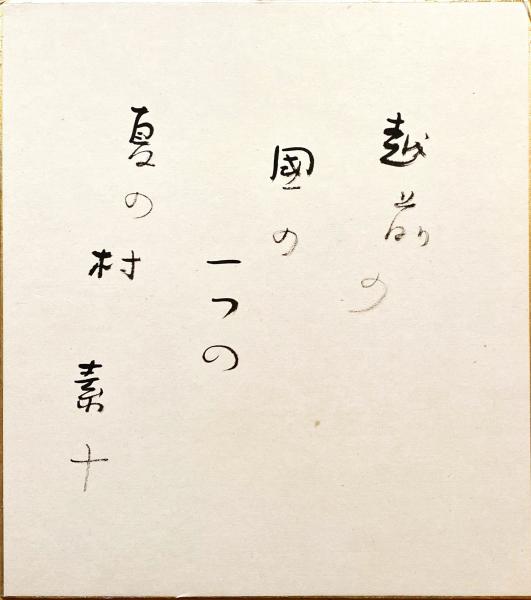 越前の
國の
一つの
夏の村
素十